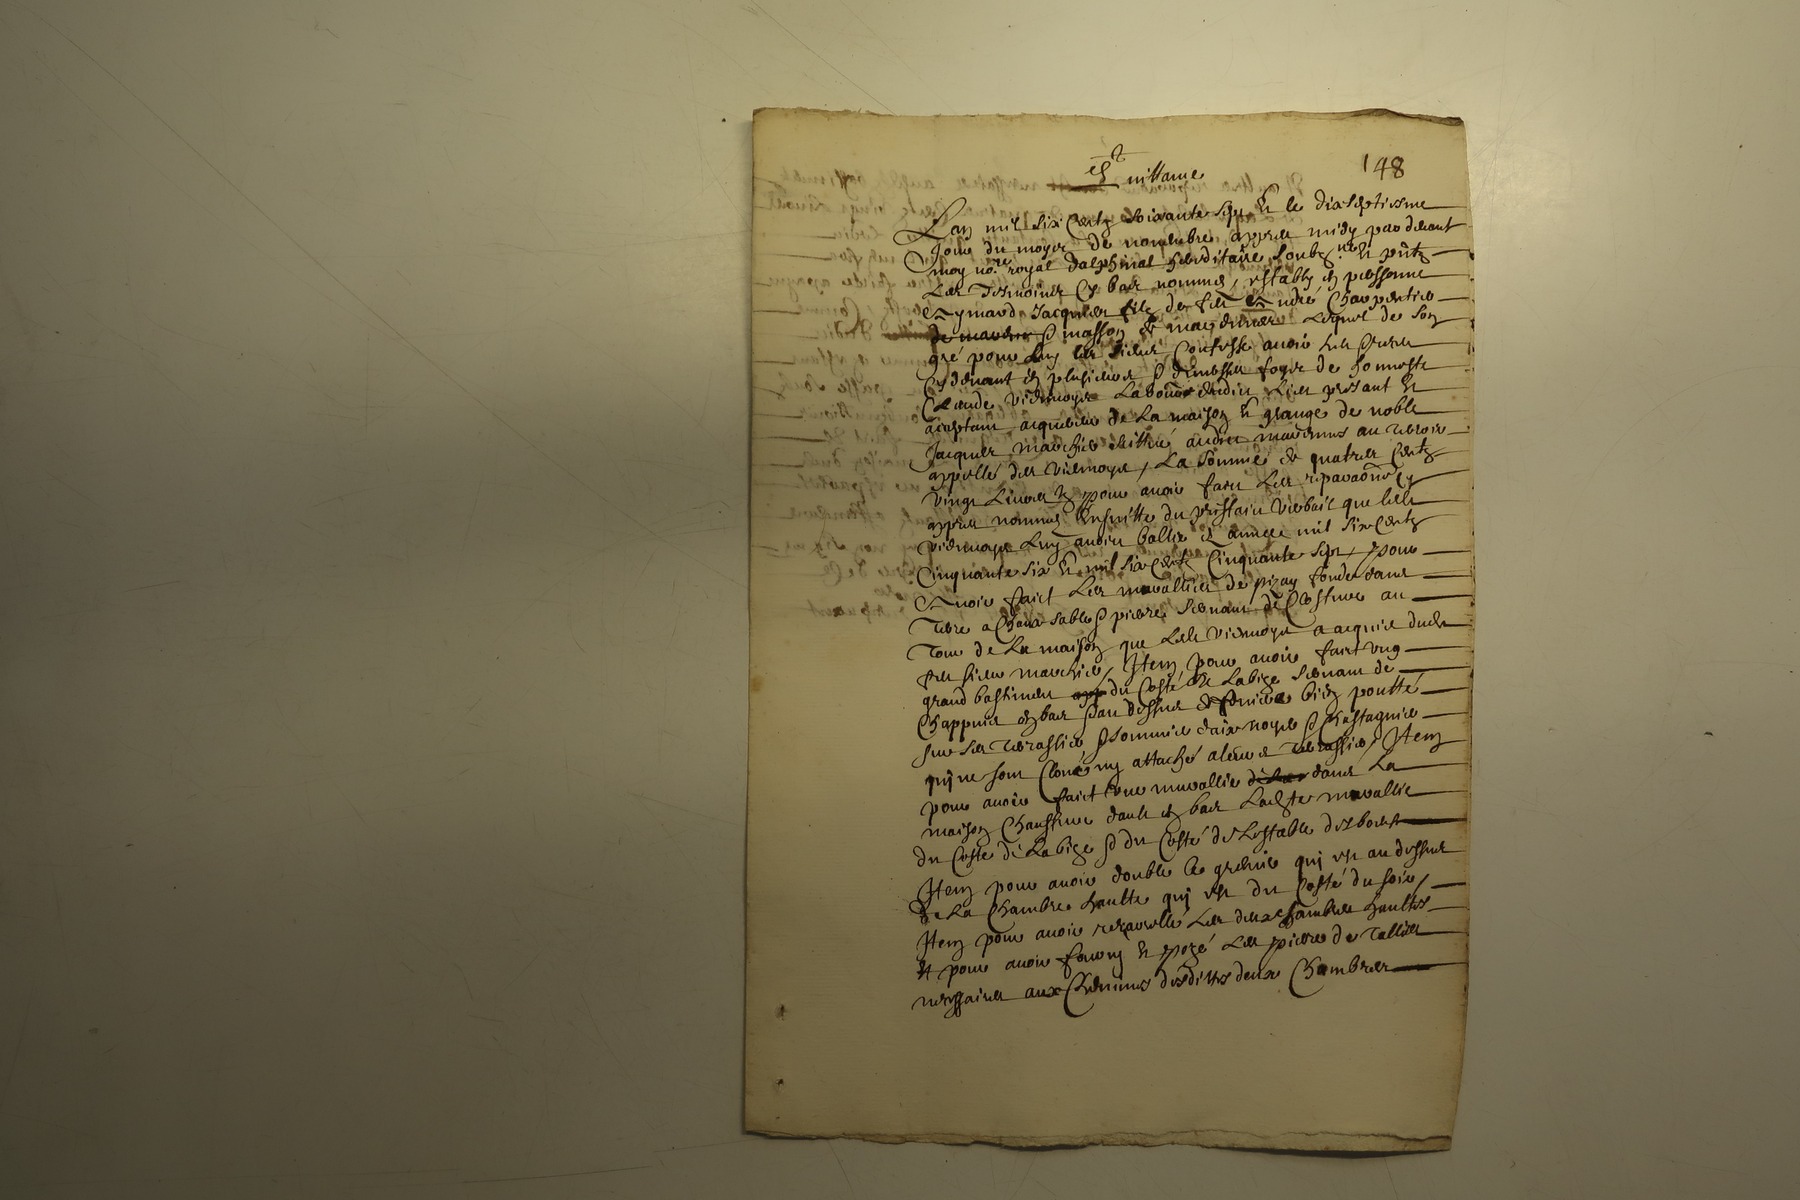 148
Lan mil six centz soixante sept & le dixseptiesme
Jour du moys de novembre appres midy par devant
moy no.re royal dalphinal hereditaire soubz.né & pntz
Les tesmoins cy bas nommes, estably en personne
Eymard Jacquier filz de feu André charpentier
masson de lequel de son
gré pour luy les siens confesse avoir heu & receu
cy devant en plusieurs & diverses foys de honneste
Claude Vieumoys Laboureur dudit lieu present &
acceptant acquereur de La maison & grange de noble
Jacques au terroir
appellé des Vieumoys, La somme de quatres centz
vingt Livres & pour avoir faict Les reparaõns cy
appres nommes ensuitte du prisfaict verbail que ledt
Vieumoys Luy avoict ballié en annee mil six centz
Cinquante six & mil six centz Cinquante sept, pour
Avoir faict Les muralliès de pizay fonde dans
Terre a chaux sable & pierre servant de au
Tour de La maison que Ledt Vieumoys a acquis dudt
feu sieur Item pour avoir faict ung
grand bastiment du Costé de La bize servant de
chappuis en bas & au dessus de bien
sur ses & sommier noyer & chastagnier
qui ne sont cloué ny attaché Item
pour avoir faict une murallie dans La
maison en bas murallie
du Coste de La bize & du Costé de Lestable des boeufs
Item pour avoir double Le grenier qui est au dessus
de La Chambre haulte qui est du Costé du soir,
Item pour avoir Les deux chambres haultes
Et pour avoir fourny & pozé Les pierre de Tallies
aux cheminés desdittes deux Chambres